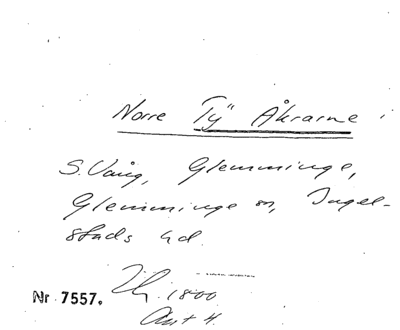 Norre "Ty" Åkrarne
S. Vång, Glemminge,
Glemminge sn, Ingel-
stads hd.
1800
Nr 7557.
Akt 4.